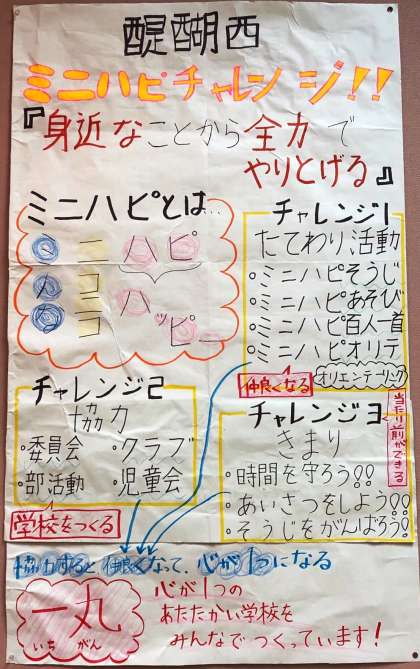 醍醐西
ミニハピチャレンジ!!
『身近なことから全力で
やりとげる』
ミニハピとは…
ミ ニ ハピ
コ ハ
ッピー
チャレンジ1
たてわり活動
○ミニハピそうじ
○ミニハピあそび
○ミニハピ百人一首
○ミニハピオリテ
オリエンテーリング
仲良くなる
チャレンジ2
協力
・委員会 ・クラブ
・部活動 ・児童会
学校をつくる
チャレンジ3
きまり
当たり前ができる
・時間を守ろう!!
・あいさつをしよう!!
・そうじをがんばろう!
協力すると仲良くなって、心が1つになる
一丸
いち がん
心が1つの
あたたかい学校を
みんなでつくっています!